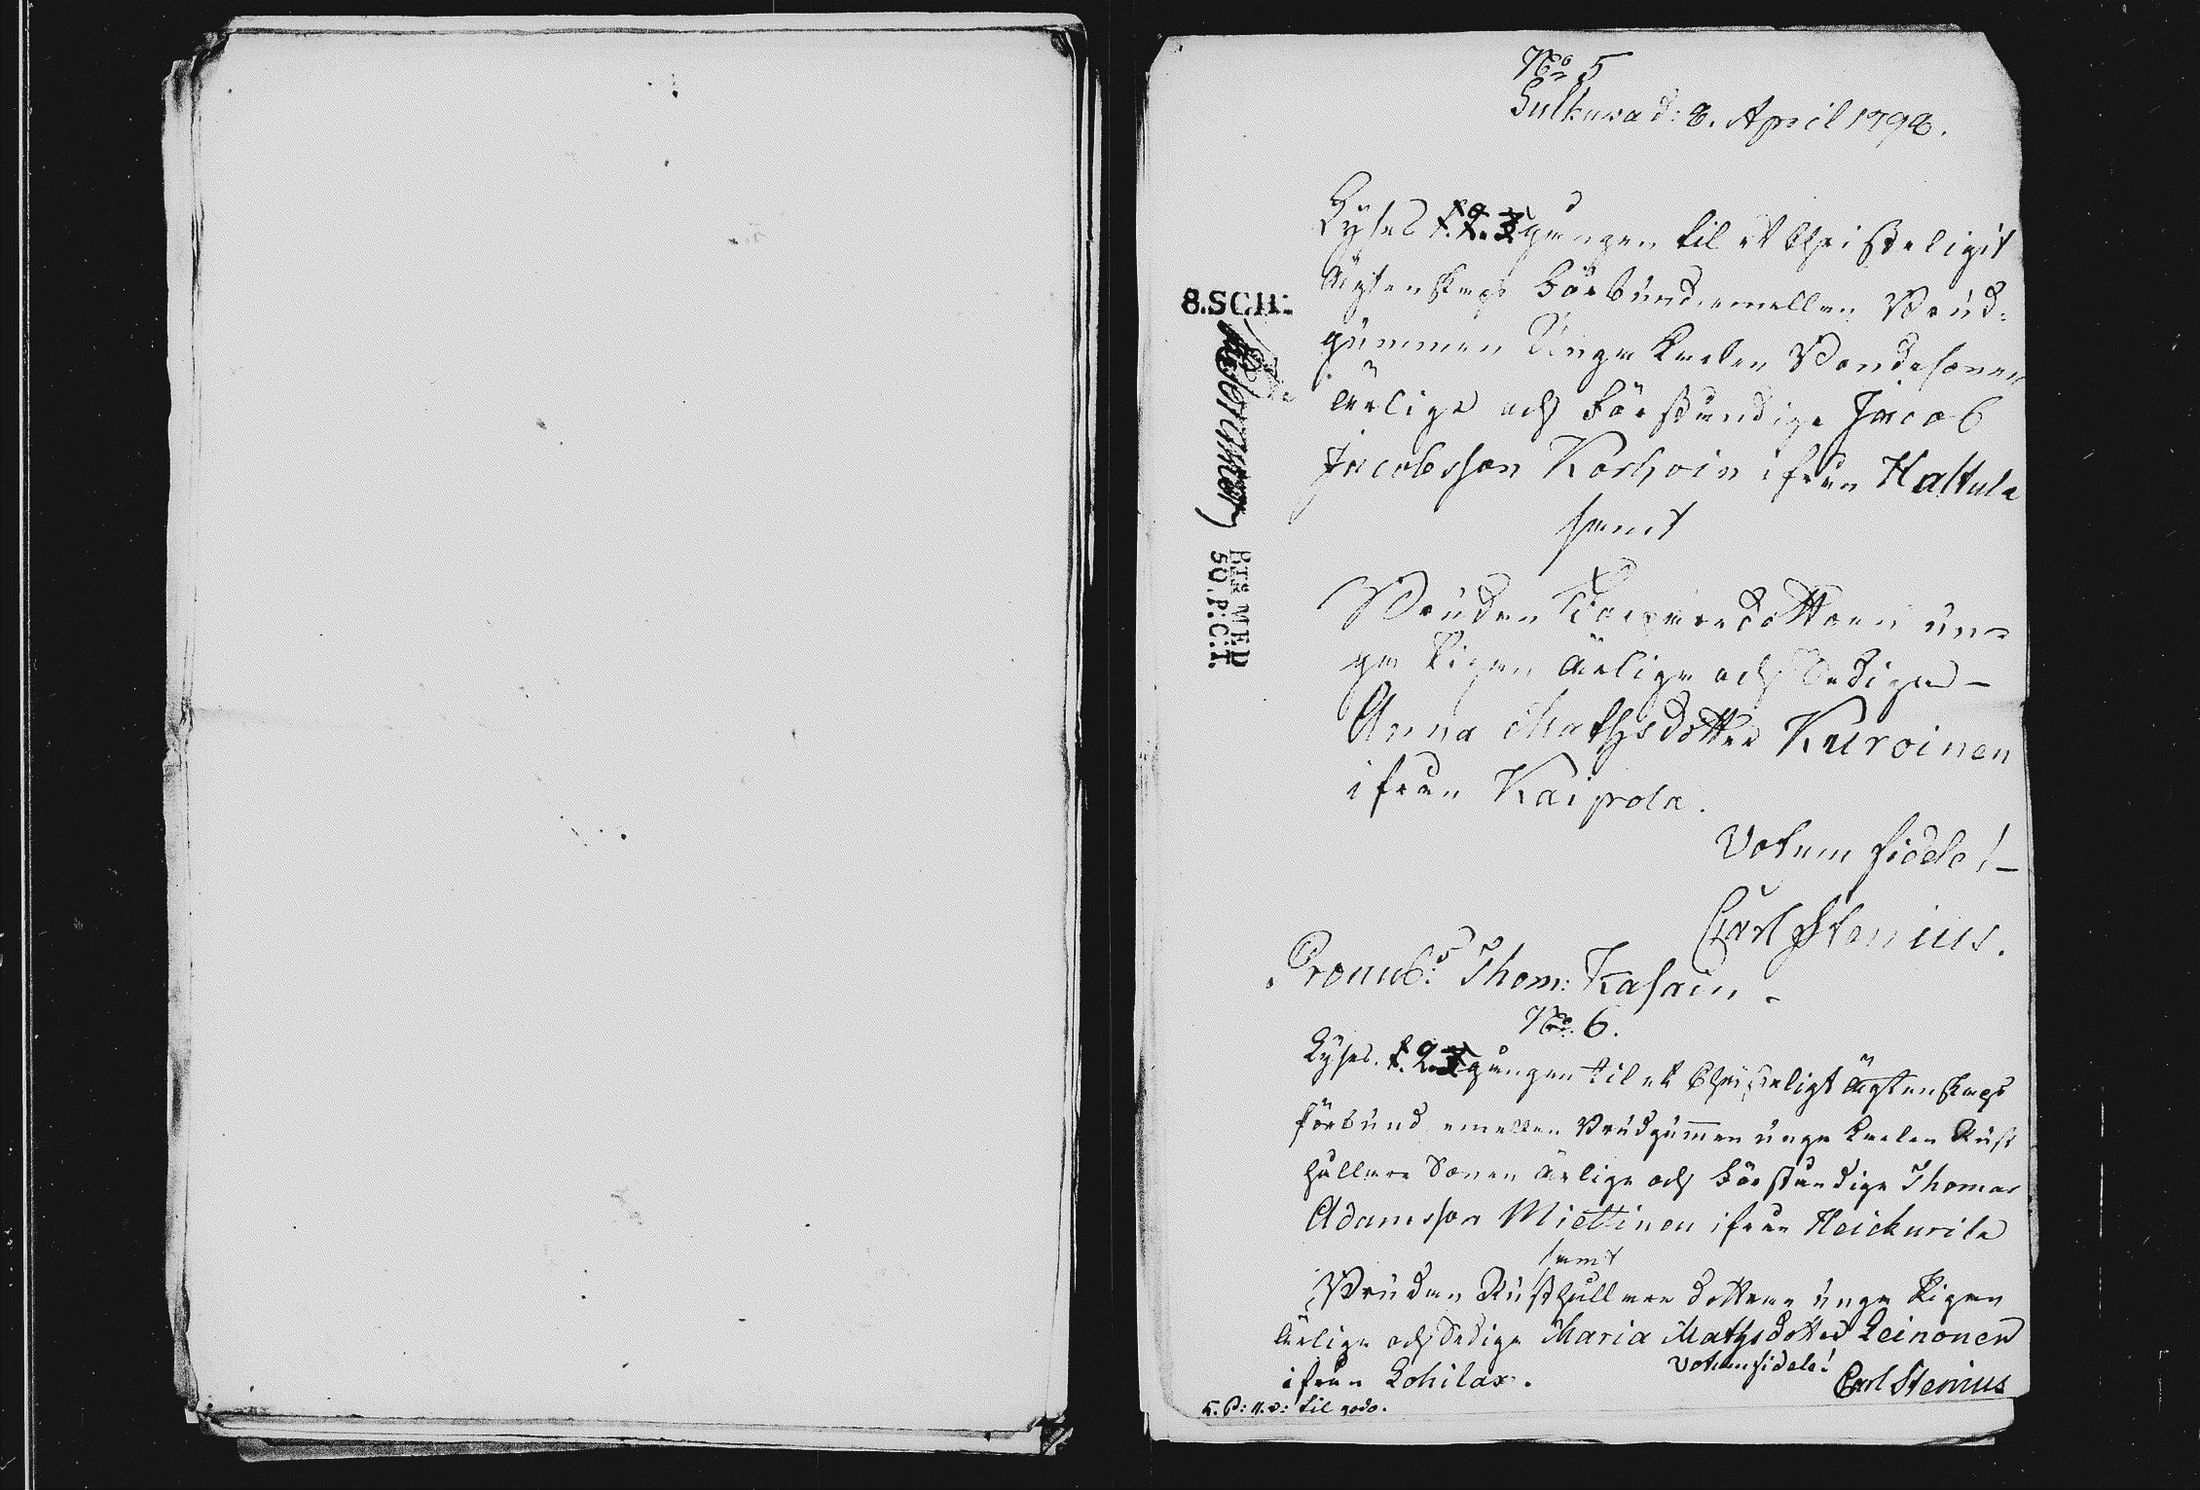 No 5
Sulkava d: 8. April 1798.
Lyses 1. 2. 3 gången til et Christeligit
Ägtenskaps Förbund emellan Brud-
gummen Unga Karlen Bondesonen
ärlige och Förståndige Jacob
Jacobsson Korhoin ifrån Halttula
samt
Bruden dottren un-
ga Pigan ärliga och Sediga
Anna Mathsdotter Kuroinen
ifrån Kaipola.
Votum fidele!
Carl Stenius.
Pronub: Thom: Kasain
No 6.
Lyses. 1. 2. 3 gången til et Christeligt ägtenskaps
förbund emellan Brudgummen unga Karlen Rust
hållare Sonen ärlige och Förståndige Thomas
Adamsson Miettinen ifrån Heickurila
samt
Bruden Rusthållare dottren unga Pigan
ärliga och Sediga Maria Mathsdotter Leinonen
ifrån Lohilax.
Votum fidele!
Carl Stenius
til godo.
8.SCH:
BTS MED
50.P:C:T.